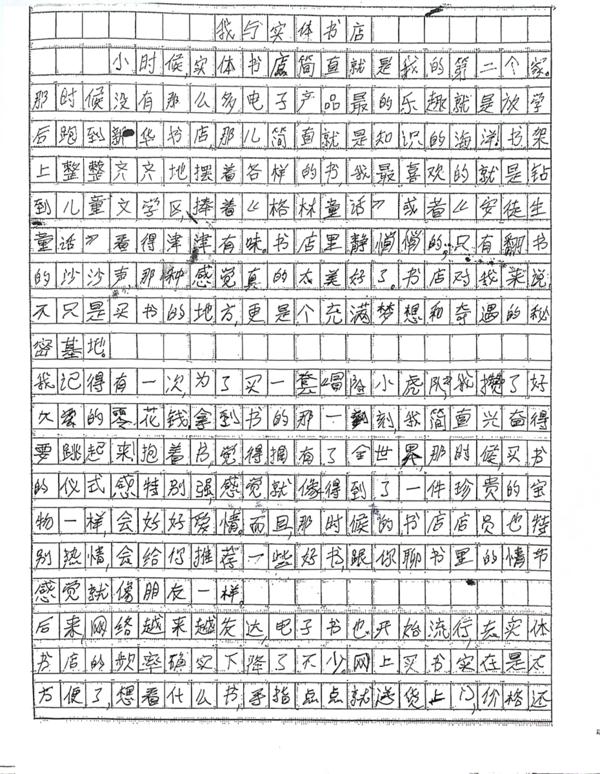 我与实体书店
小时候,实体书店简直就是我的第二个家.
那时候没有那么多电子产品最的乐趣就是放学
后跑到新华书店那儿简直就是知识的海洋.书架
上整整齐齐地摆着各样的书,我最喜欢的就是钻
到儿童文学区,捧着《格林童话》或者《安徒生
童话》看得津津有味.书店里静悄悄的,只有翻书
的沙沙声,那种感觉真的太美好了.书店对我来说,
不只是买书的地方,更是个充满梦想和奇遇的秘
密基地.
我记得有一次,为了买一套《冒险小虎队》我攒了好
久的零花钱拿到书的那一刻,我简直兴奋得
要跳起来抱着书,觉得拥有了全世界,那时候,买书
的仪式感特别强,感觉就像得到了一件珍贵的宝
物一样,会好好爱惜.而且,那时候的书店店员也特
别热情,会给你推荐一些好书,跟你聊书里的情节
感觉就像朋友一样.
后来网络越来越发达,电子书也开始流行,去实体
书店的频率确实下降了不少.网上买书实在是太
方便了,想看什么书,手指点点就送货上门,价格还